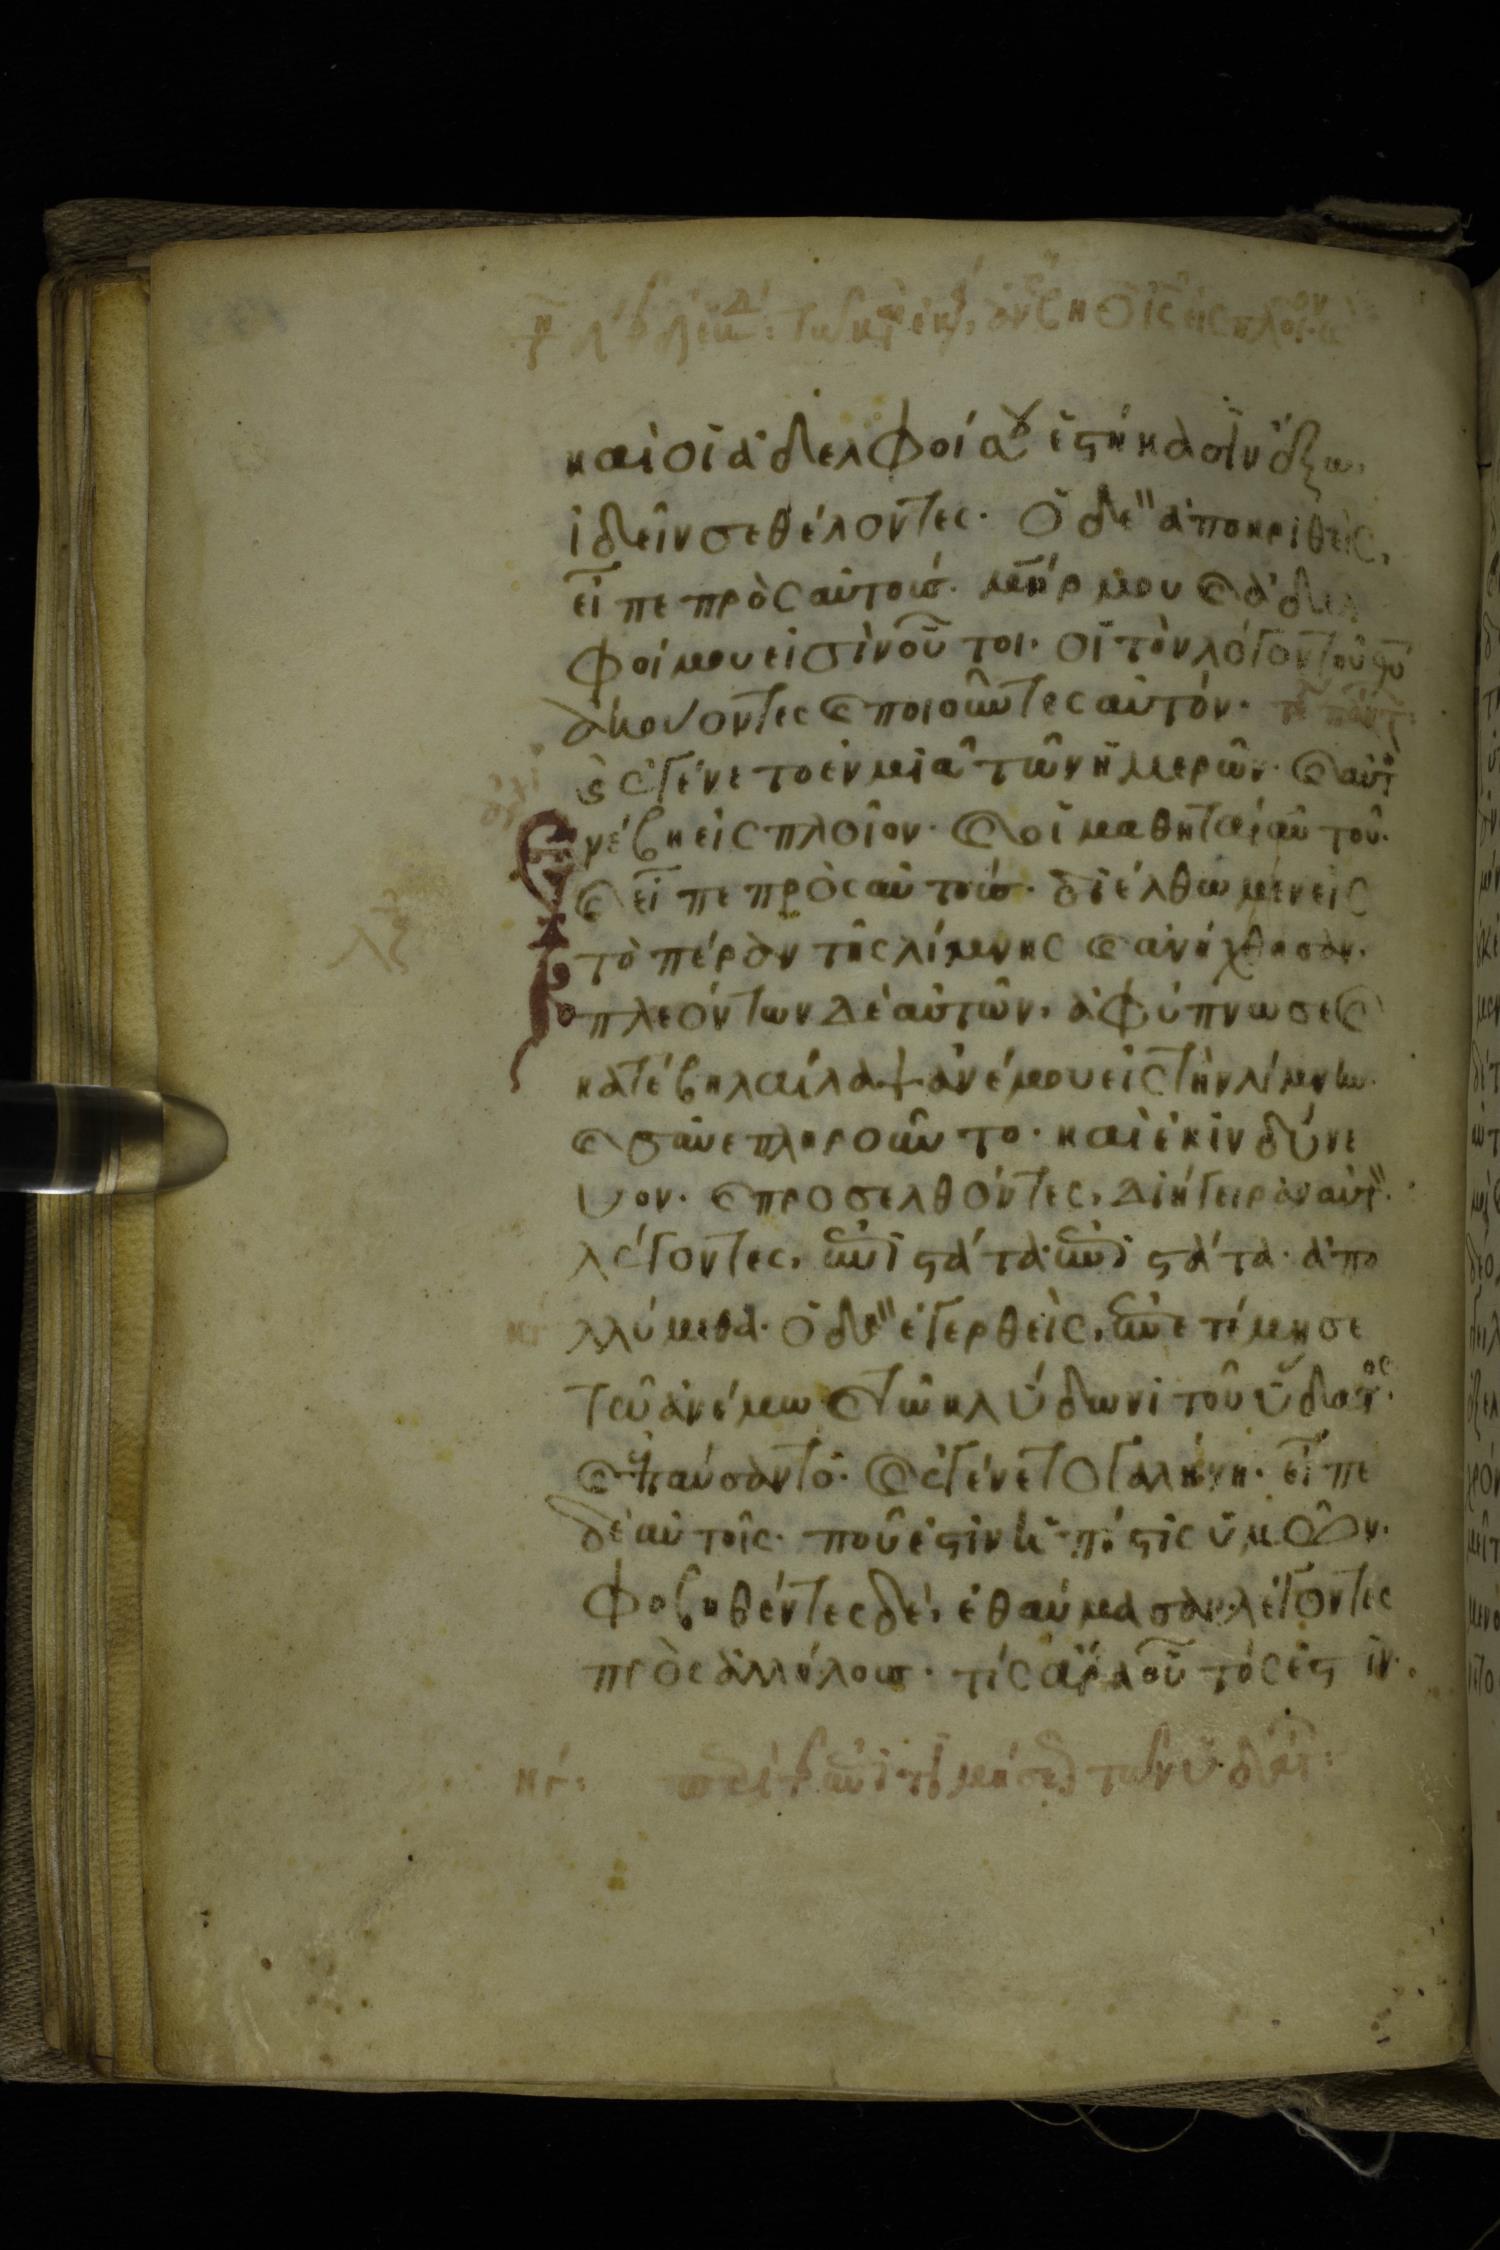 καὶ οἱ ἀδελφοί σου ἑστήκασιν ἔξω,
ἰδεῖν σε θέλοντες. Ὁ δὲ ἀποκριθεὶς,
εἶπε πρὸς αὐτούς. μηρ μου καὶ ἀδελ
φοί μου εἰσὶν οὗτοι. οἱ τὸν λόγον τοῦ θυ
ἀκούοντες καὶ ποιοῦντες αὐτόν.
καὶ ἐγένετο ἐν μιᾷ τῶν ἡμερῶν. καὶ αὐτὸς
ἐνέβη εἰς πλοῖον. καὶ οἱ μαθηταὶ αὐτοῦ.
καὶ εἶπε πρὸς αὐτούς. διέλθωμεν εἰς
τὸ πέραν τῆς λίμνης καὶ ἀνήχθησαν.
πλεόντων δὲ αὐτῶν, ἀφύπνωσε καὶ
κατέβη λαίλαψ ἀνέμου εἰς τὴν λίμνην.
καὶ συνεπληροῦντο. καὶ ἐκινδύνε
υον. καὶ προσελθόντες, διήγειραν αὐτὸν.
λέγοντες, ἐπιστάτα ἐπιστάτα. ἀπο
λλύμεθα. ὁ δὲ ἐγερθεὶς, ἐπετίμησε
τῶ ἀνέμω καὶ τῶ κλύδωνι τοῦ ὕδατος.
καὶ ἐπαύσαντο. καὶ ἐγένετο γαλήνη. εἶπε
δὲ αὐτοῖς. ποῦ ἐστιν ἡ πίστις ὑμῶν.
φοβηθέντες δὲ, ἐθαύμασαν λέγοντες
πρὸς ἀλλήλους. τίς ἄρα οὗτός ἐστιν.